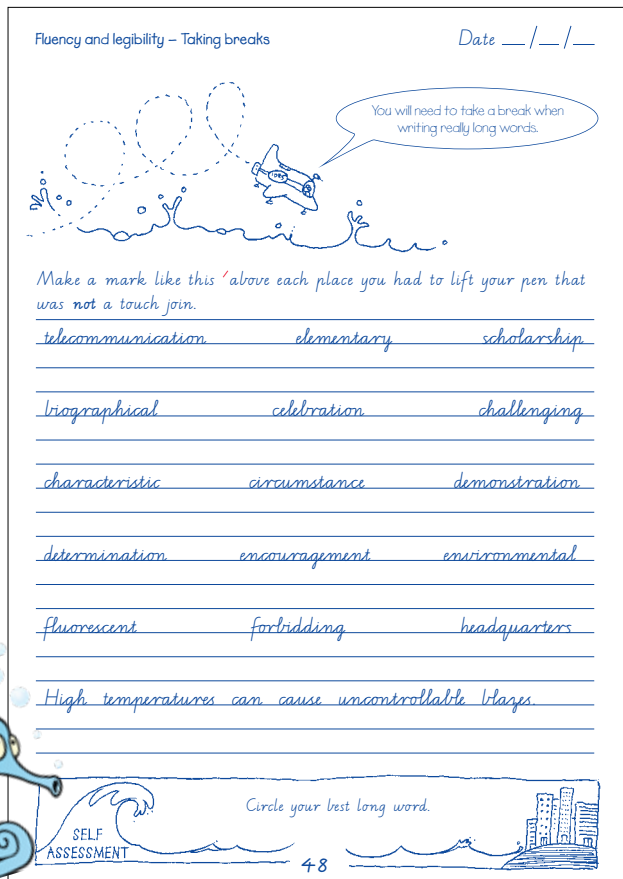 Fluency and legibility – Taking breaks
Date __/__/__
You will need to take a break when
writing really long words.
Make a mark like this ′ above each place you had to lift your pen that
was not a touch join.
telecommunication elementary scholarship
biographical celebration challenging
characteristic circumstance demonstration
determination encouragement environmental
fluorescent forbidding headquarters
High temperatures can cause uncontrollable blazes.
Circle your best long word.
SELF
ASSESSMENT
48